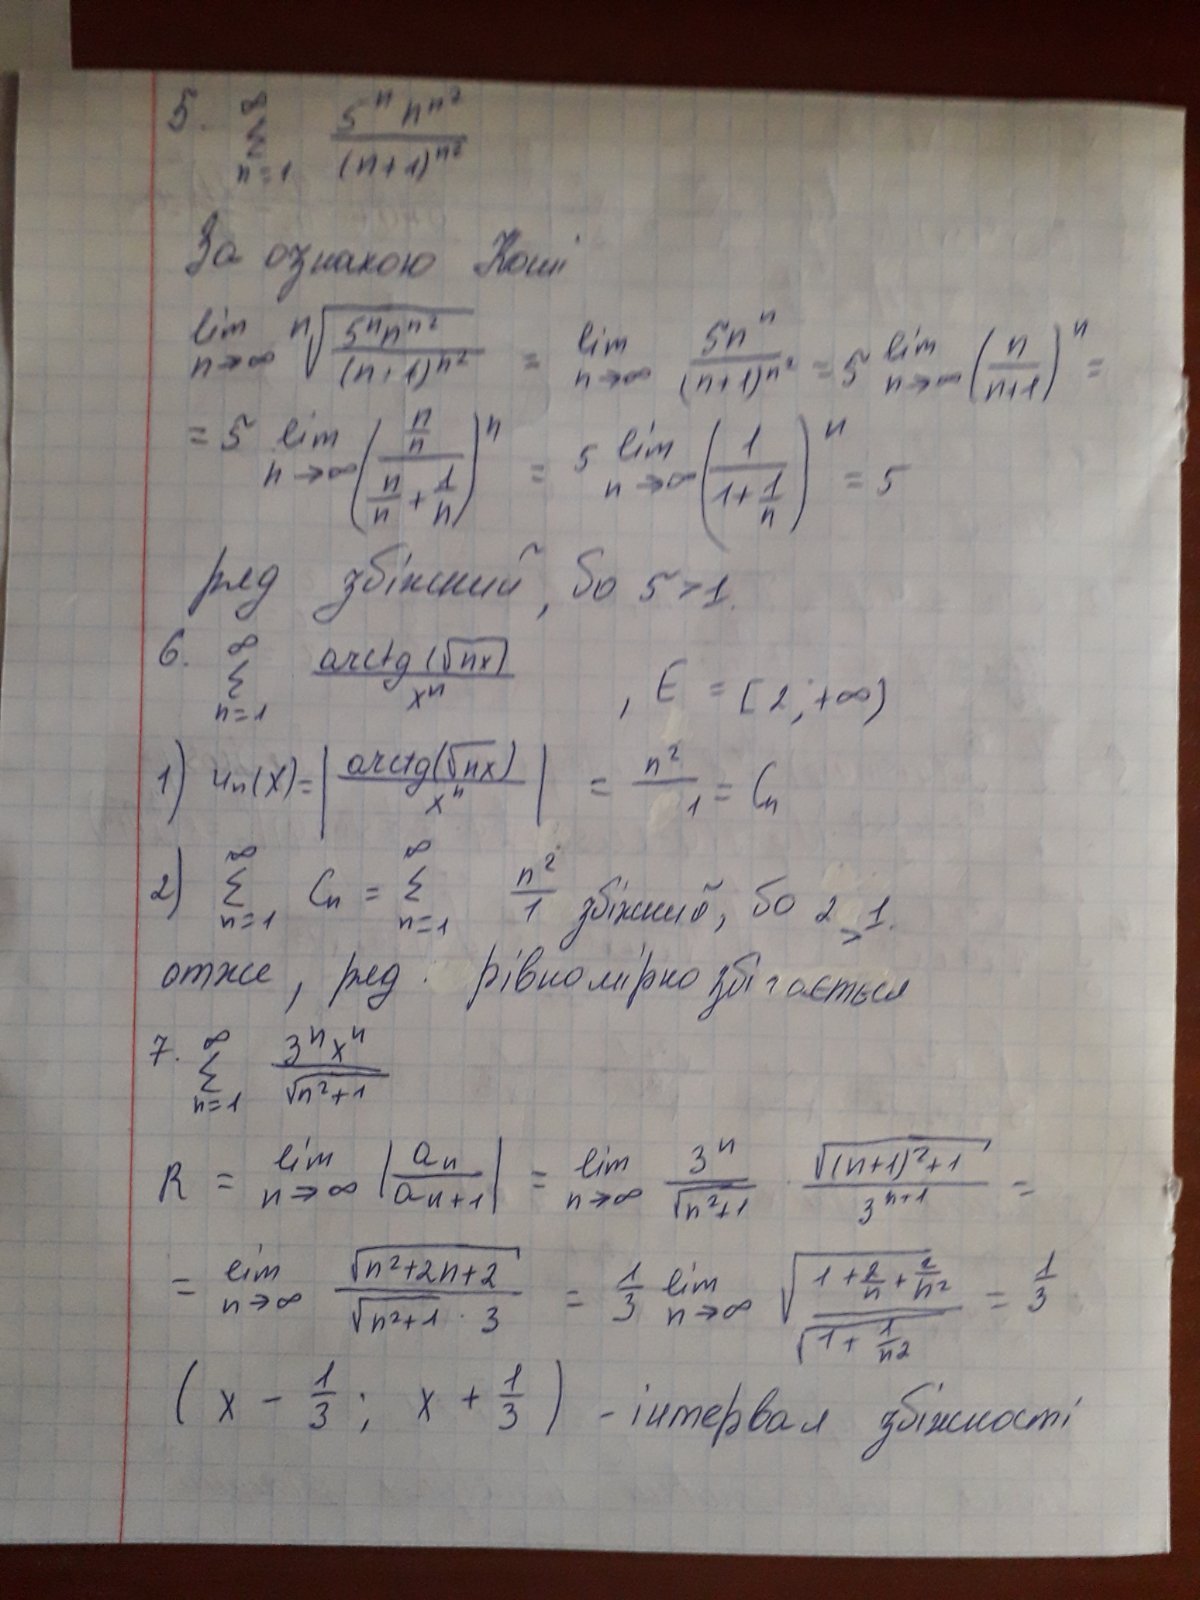 5. ∞ ∑ n=1 5ⁿ n^(n²) / (n+1)^(n²)
За ознакою Коші
lim n→∞ ⁿ√(5ⁿ n^(n²) / (n+1)^(n²)) = lim n→∞ 5nⁿ / (n+1)^(n²) = 5 lim n→∞ (n / n+1)ⁿ =
= 5 lim n→∞ (n/n / (n/n + 1/n))ⁿ = 5 lim n→∞ (1 / (1 + 1/n))ⁿ = 5
ряд збіжний, бо 5 > 1.
6. ∞ ∑ n=1 arctg(√nx) / xⁿ , E = [2; +∞)
1) uₙ(x) = | arctg(√nx) / xⁿ | = n² / 1 = Cₙ
2) ∞ ∑ n=1 Cₙ = ∞ ∑ n=1 n² / 1 збіжний, бо 2 > 1.
отже, ряд рівномірно збігається
7. ∞ ∑ n=1 3ⁿxⁿ / √(n²+1)
R = lim n→∞ | aₙ / aₙ₊₁ | = lim n→∞ 3ⁿ / √(n²+1) · √((n+1)²+1) / 3ⁿ⁺¹ =
= lim n→∞ √(n²+2n+2) / (√(n²+1) · 3) = 1/3 lim n→∞ √(1 + 2/n + 2/n²) / √(1 + 1/n²) = 1/3
(x − 1/3; x + 1/3) - інтервал збіжності